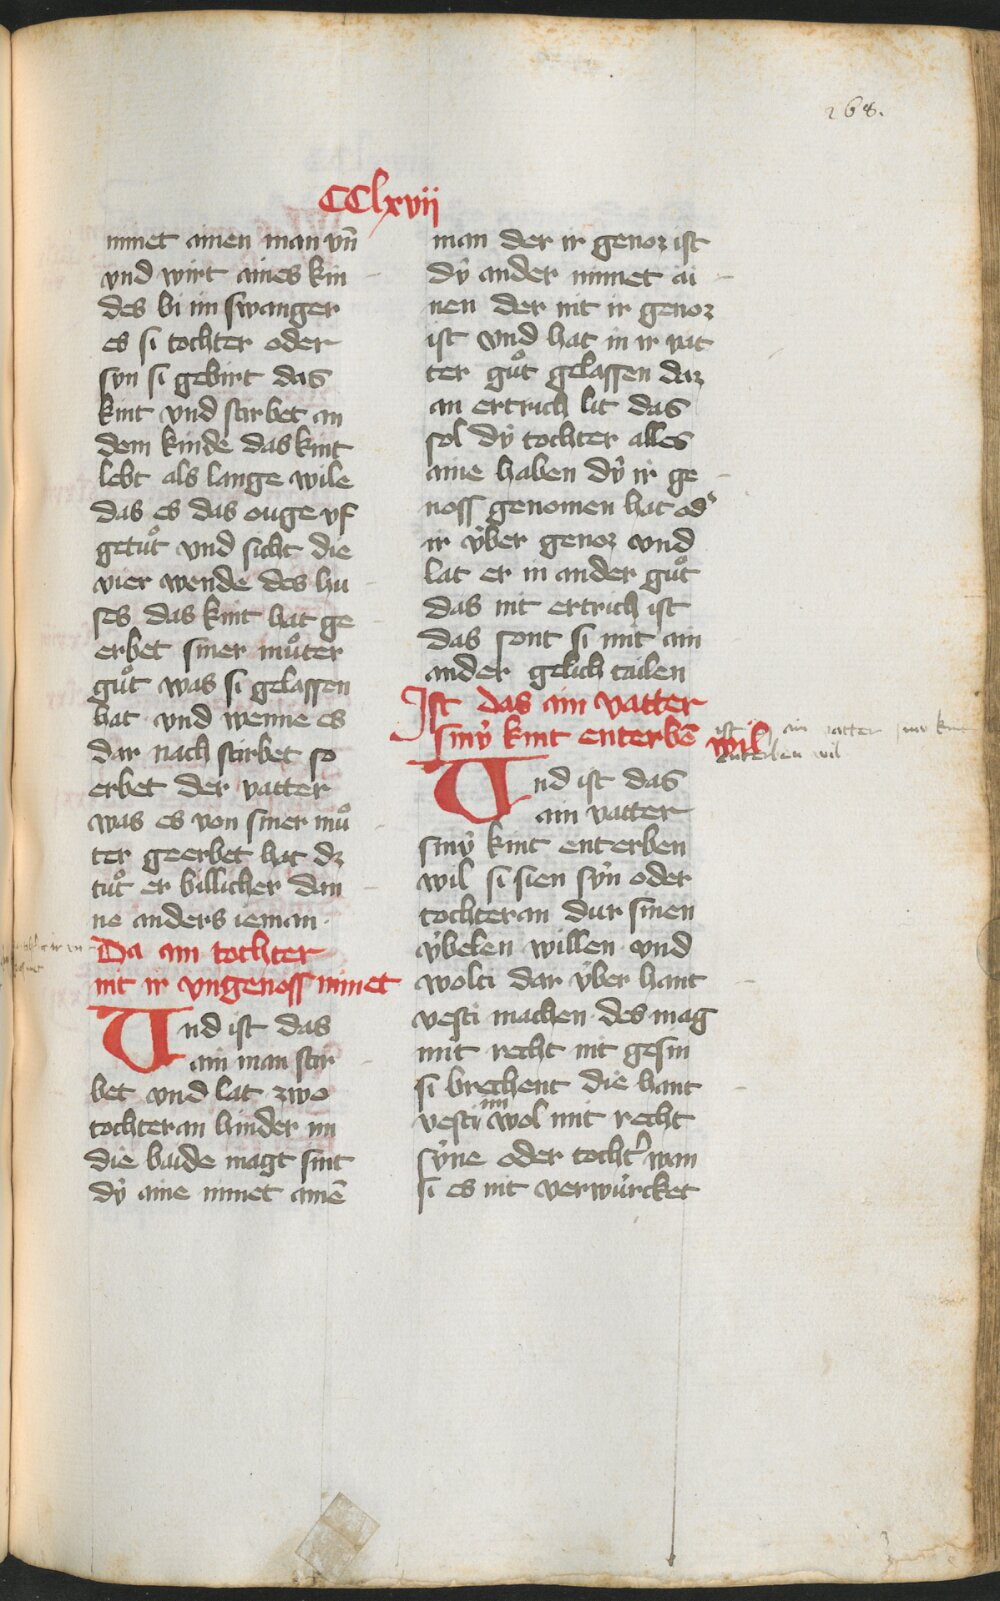 268.
CClxvii
nimet ainen man vn̄
vnd wirt aines kin
des bi im swanger
es si tochter oder
sun si gebirt das
kint vnd stirbet an
dem kinde das kint
lebt als lange wile
das es das ouge vf
getuͦt vnd sicht die
vier wende des hu
ses das kint hat ge
erbet siner muͦter
guͦt was si gelassen
hat vnd wenne es
dar nach stirbet so
erbet der vatter
was es von siner muͦ
ter geerbet hat dz
tuͦt er billicher dan
ne anders ieman.
Da ain tochter
nit ir vngenoss nimet
Vnd ist das
ain man stir
bet vnd lat zwo
tochteran hinder im
die baide magt sint
dÿ aine nimet ainē
man der ir genoz ist
dÿ ander nimet ai
nen der nit ir genoz
ist vnd hat in ir vat
ter guͦt gelassen daz
an ertrich lit das
sol dÿ tochter alles
aine haben dÿ ir ge
noss genomen hat od'
ir v́ber genoz vnd
lat er in ander guͦt
das nit ertrich ist
das sont si mit ain
ander gelich tailen
Ist das ain vatter
sinÿ kint enterbē wil
ist ain vatter sinv kin
enterben wil
Vnd ist das
ain vatter
sinÿ kint enterben
wil si sien sv́n oder
tochteran dur sinen
v́belen willen vnd
wolti dar v́ber hant
vesti machen des mag
mit recht nit gesin
si brechent die hant
vesti im wol mit recht
sv́ne oder tocht' wan
si es nit verwúrcket